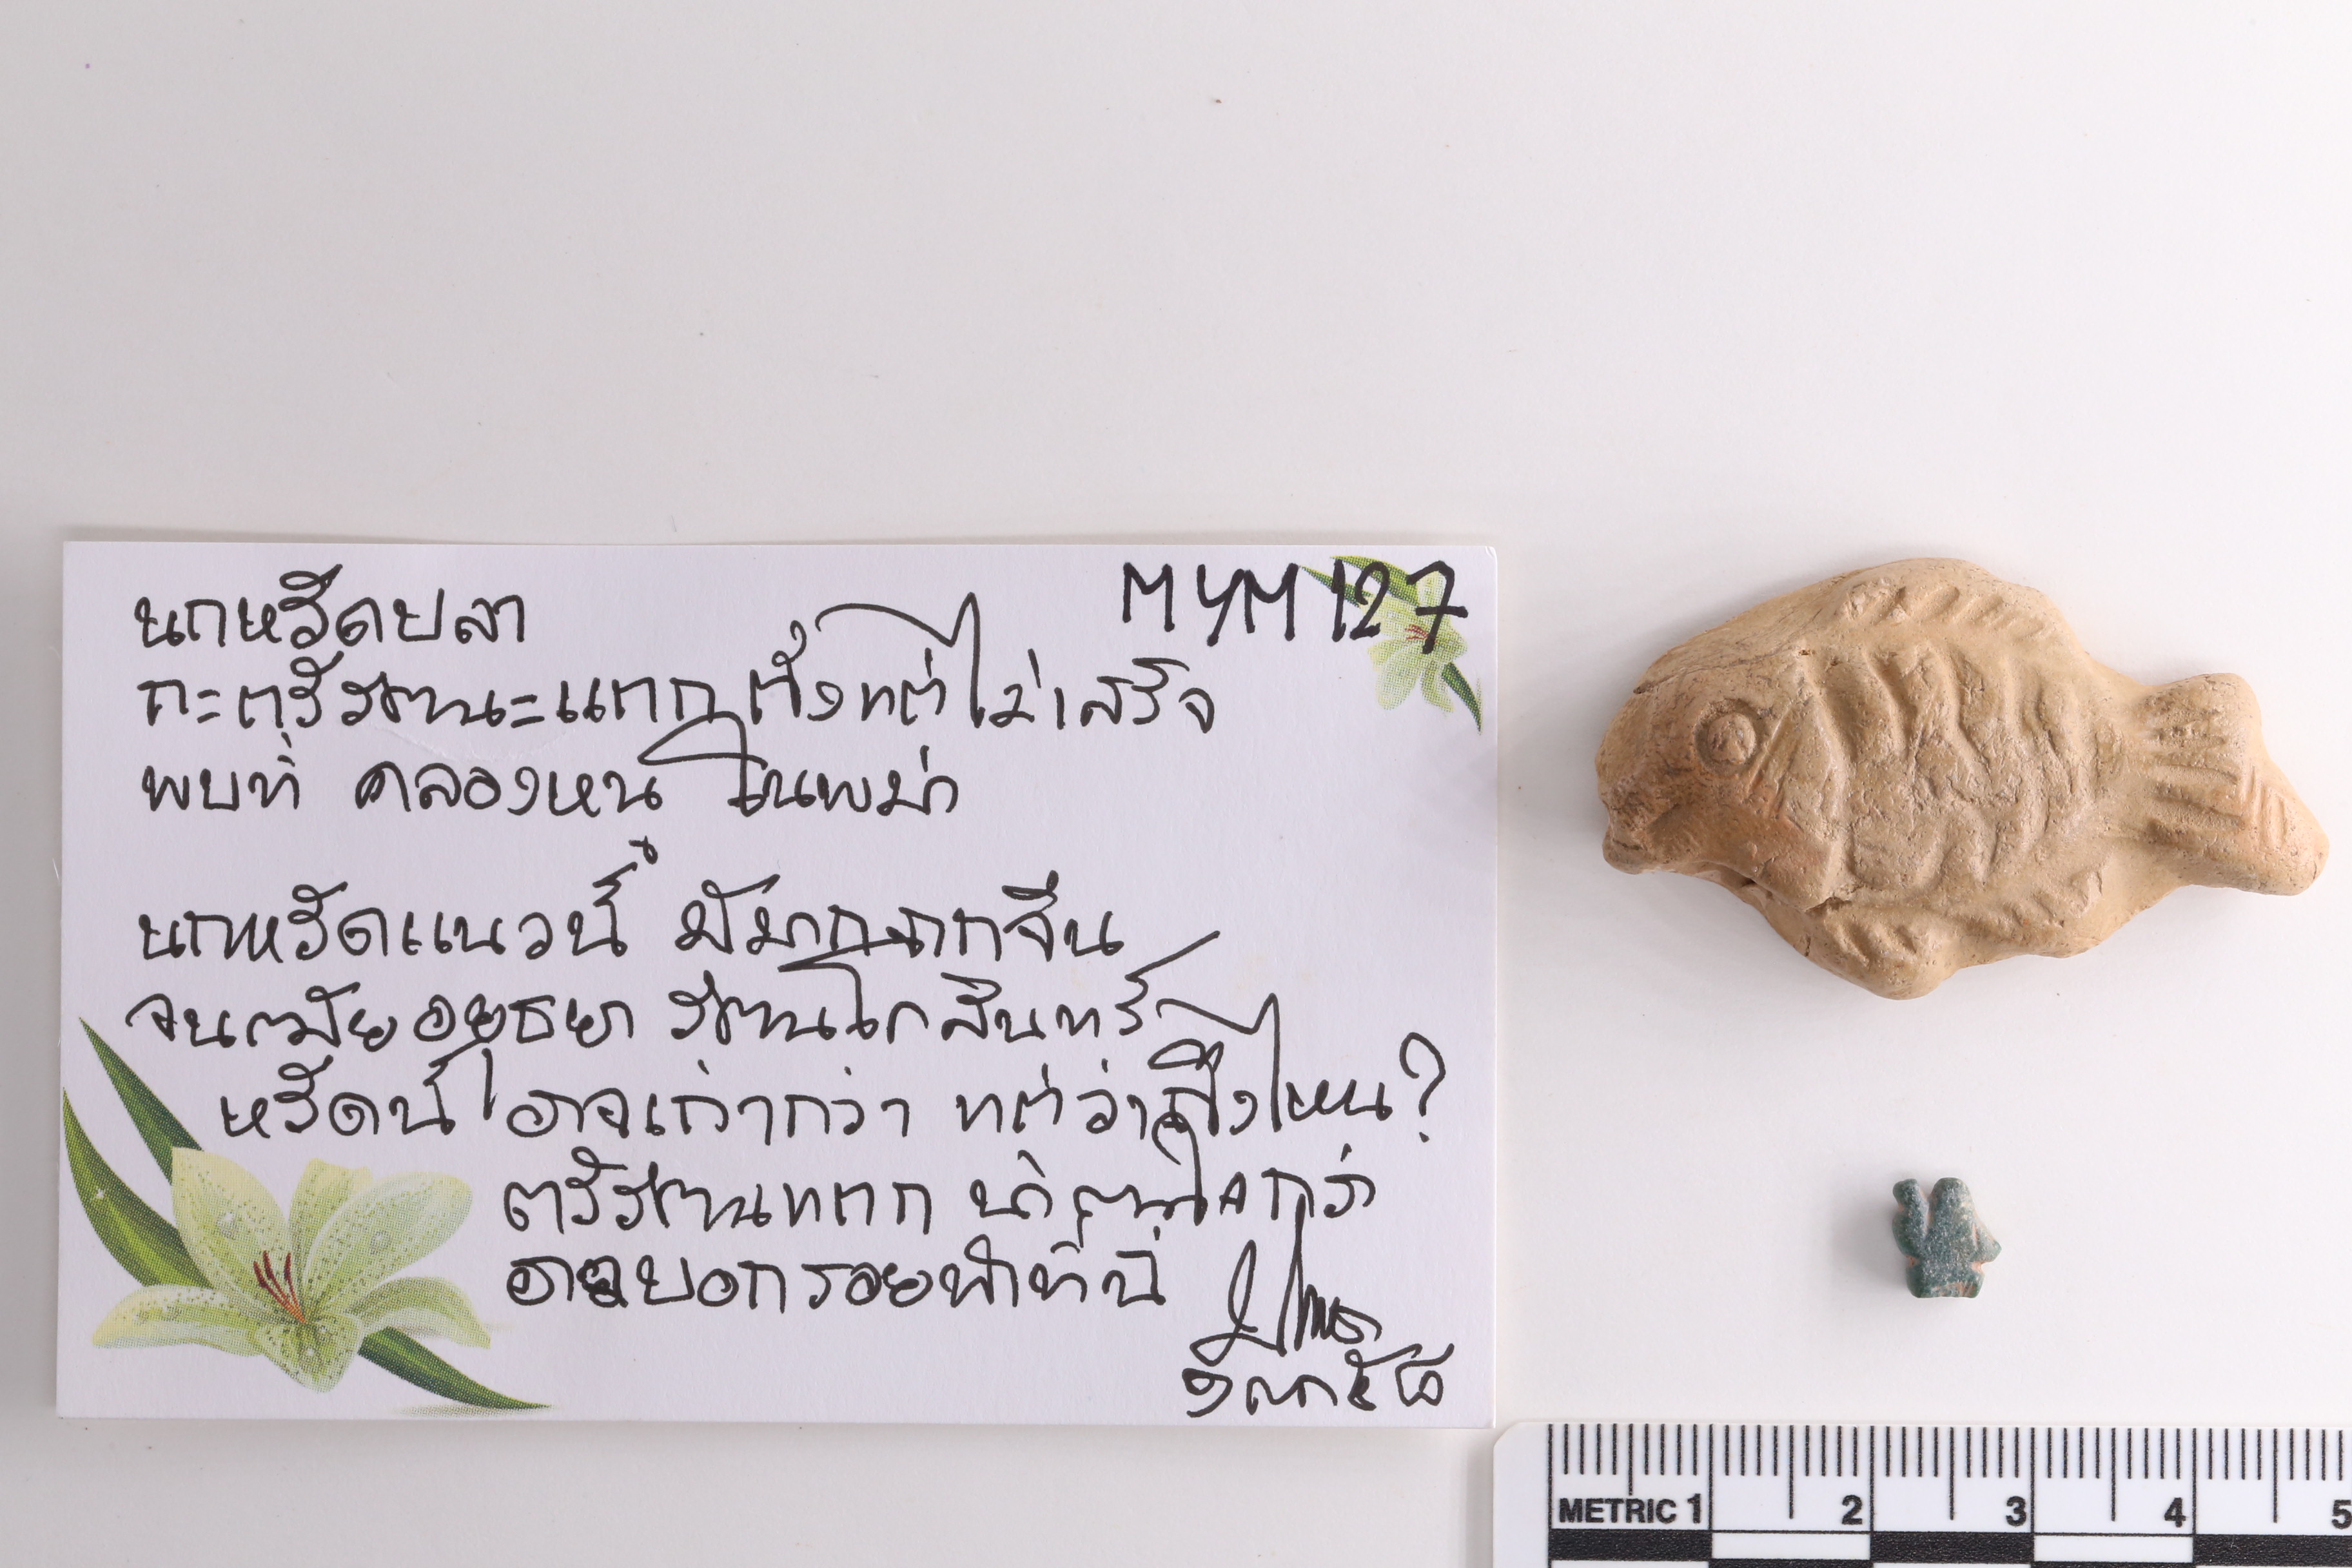 MYM 127
นกหวีดปลา
กะตรีรัตนะแตก ตั้งแต่ไม่เสร็จ
พบที่ คลองหนี ในพม่า
นกหวีดแนวนี้ มีมาจากจีน
จนสมัยอยุธยา รัตนโกสินทร์
หวีดนี้ อาจเก่ากว่า แต่ว่าถึงไหน?
ตรีรัตนแตก น่าสนใจกว่า
อาจบอกรอยฟ้าที่นี่
METRIC 1 2 3 4 5